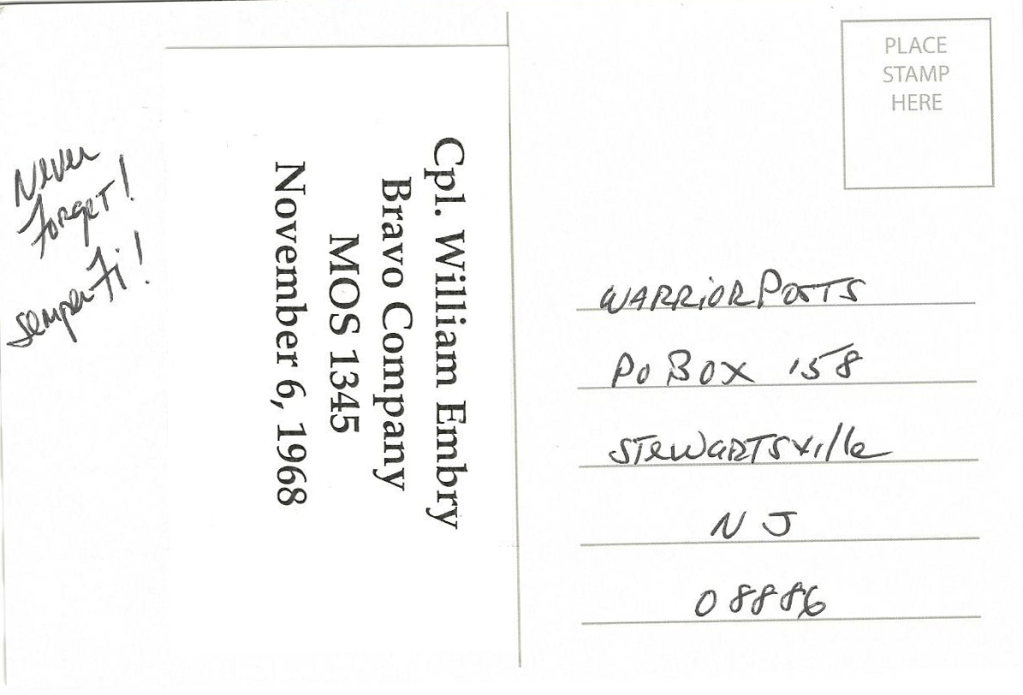 Never
Forget!
Semper Fi!
Cpl. William Embry
Bravo Company
MOS 1345
November 6, 1968
PLACE
STAMP
HERE
WARRIOR POSTS
PO BOX 158
STEWARTSville
NJ
08886